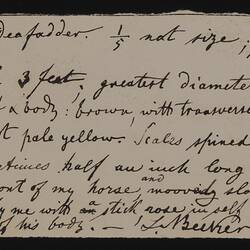 Deafadder. 1/5 nat size;
3 feet, greatest diameter
body: brown, with transverse
pale yellow. Scales spined
times half an inch long
ont of my horse, and mooved slo
me with a stick rose in self
of his body. — L. Becker